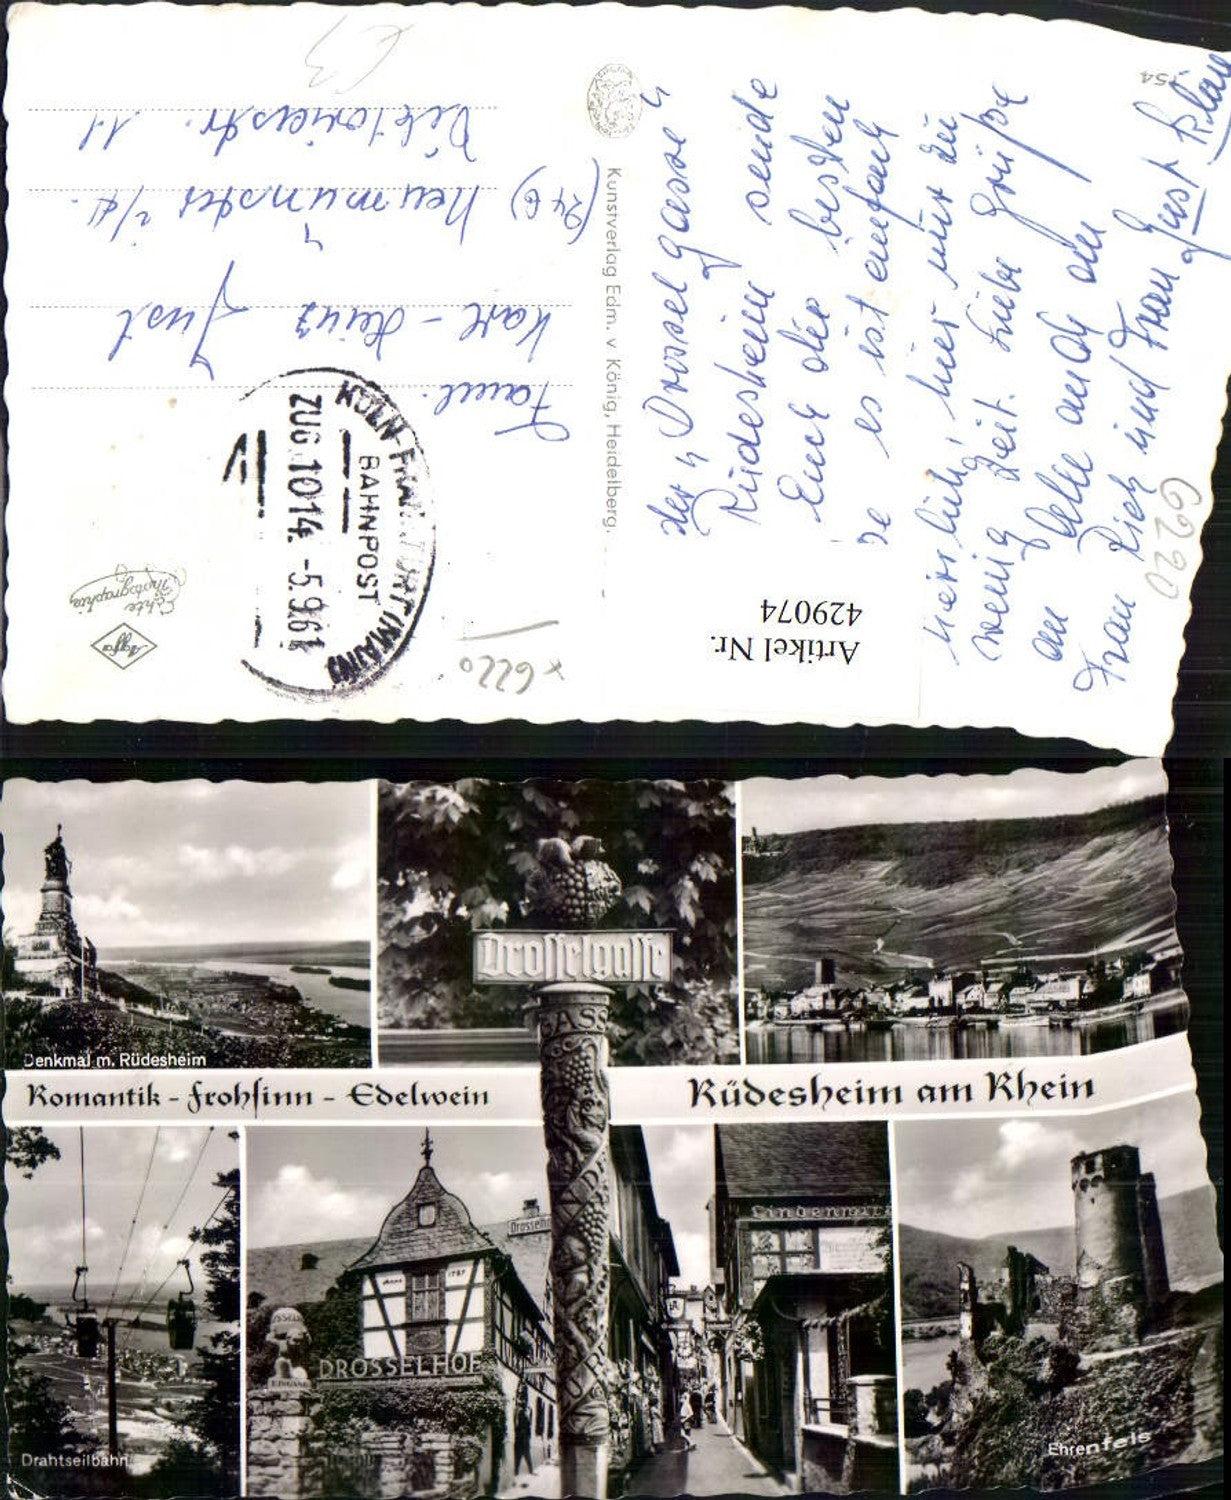 154
der „Drosselgasse“
Rüdesheim sende
Euch die besten
es ist einfach
herrlich, hier nur zu
wenig Zeit. Liebe Grüße
an alle auch an
Frau Rieh und Frau Just
Kunstverlag Edm. v König, Heidelberg.
Fam.
Karl-Heinz Just
(24b) Neumünster i/H.
Viktoriastr. 11
KÖLN-FRANKFURT (MAIN)
BAHNPOST
ZUG 1014 -5.9.61
Echte
Photographie
Agfa
Artikel Nr.
429074
6220
x 6220
Drosselgasse
Denkmal m. Rüdesheim
Romantik - Frohsinn - Edelwein
Rüdesheim am Rhein
GASS
Drosselh
Anno 1727
DROSSELHOF
EINGANG
Lindenwirt
Drahtseilbahn
Ehrenfels